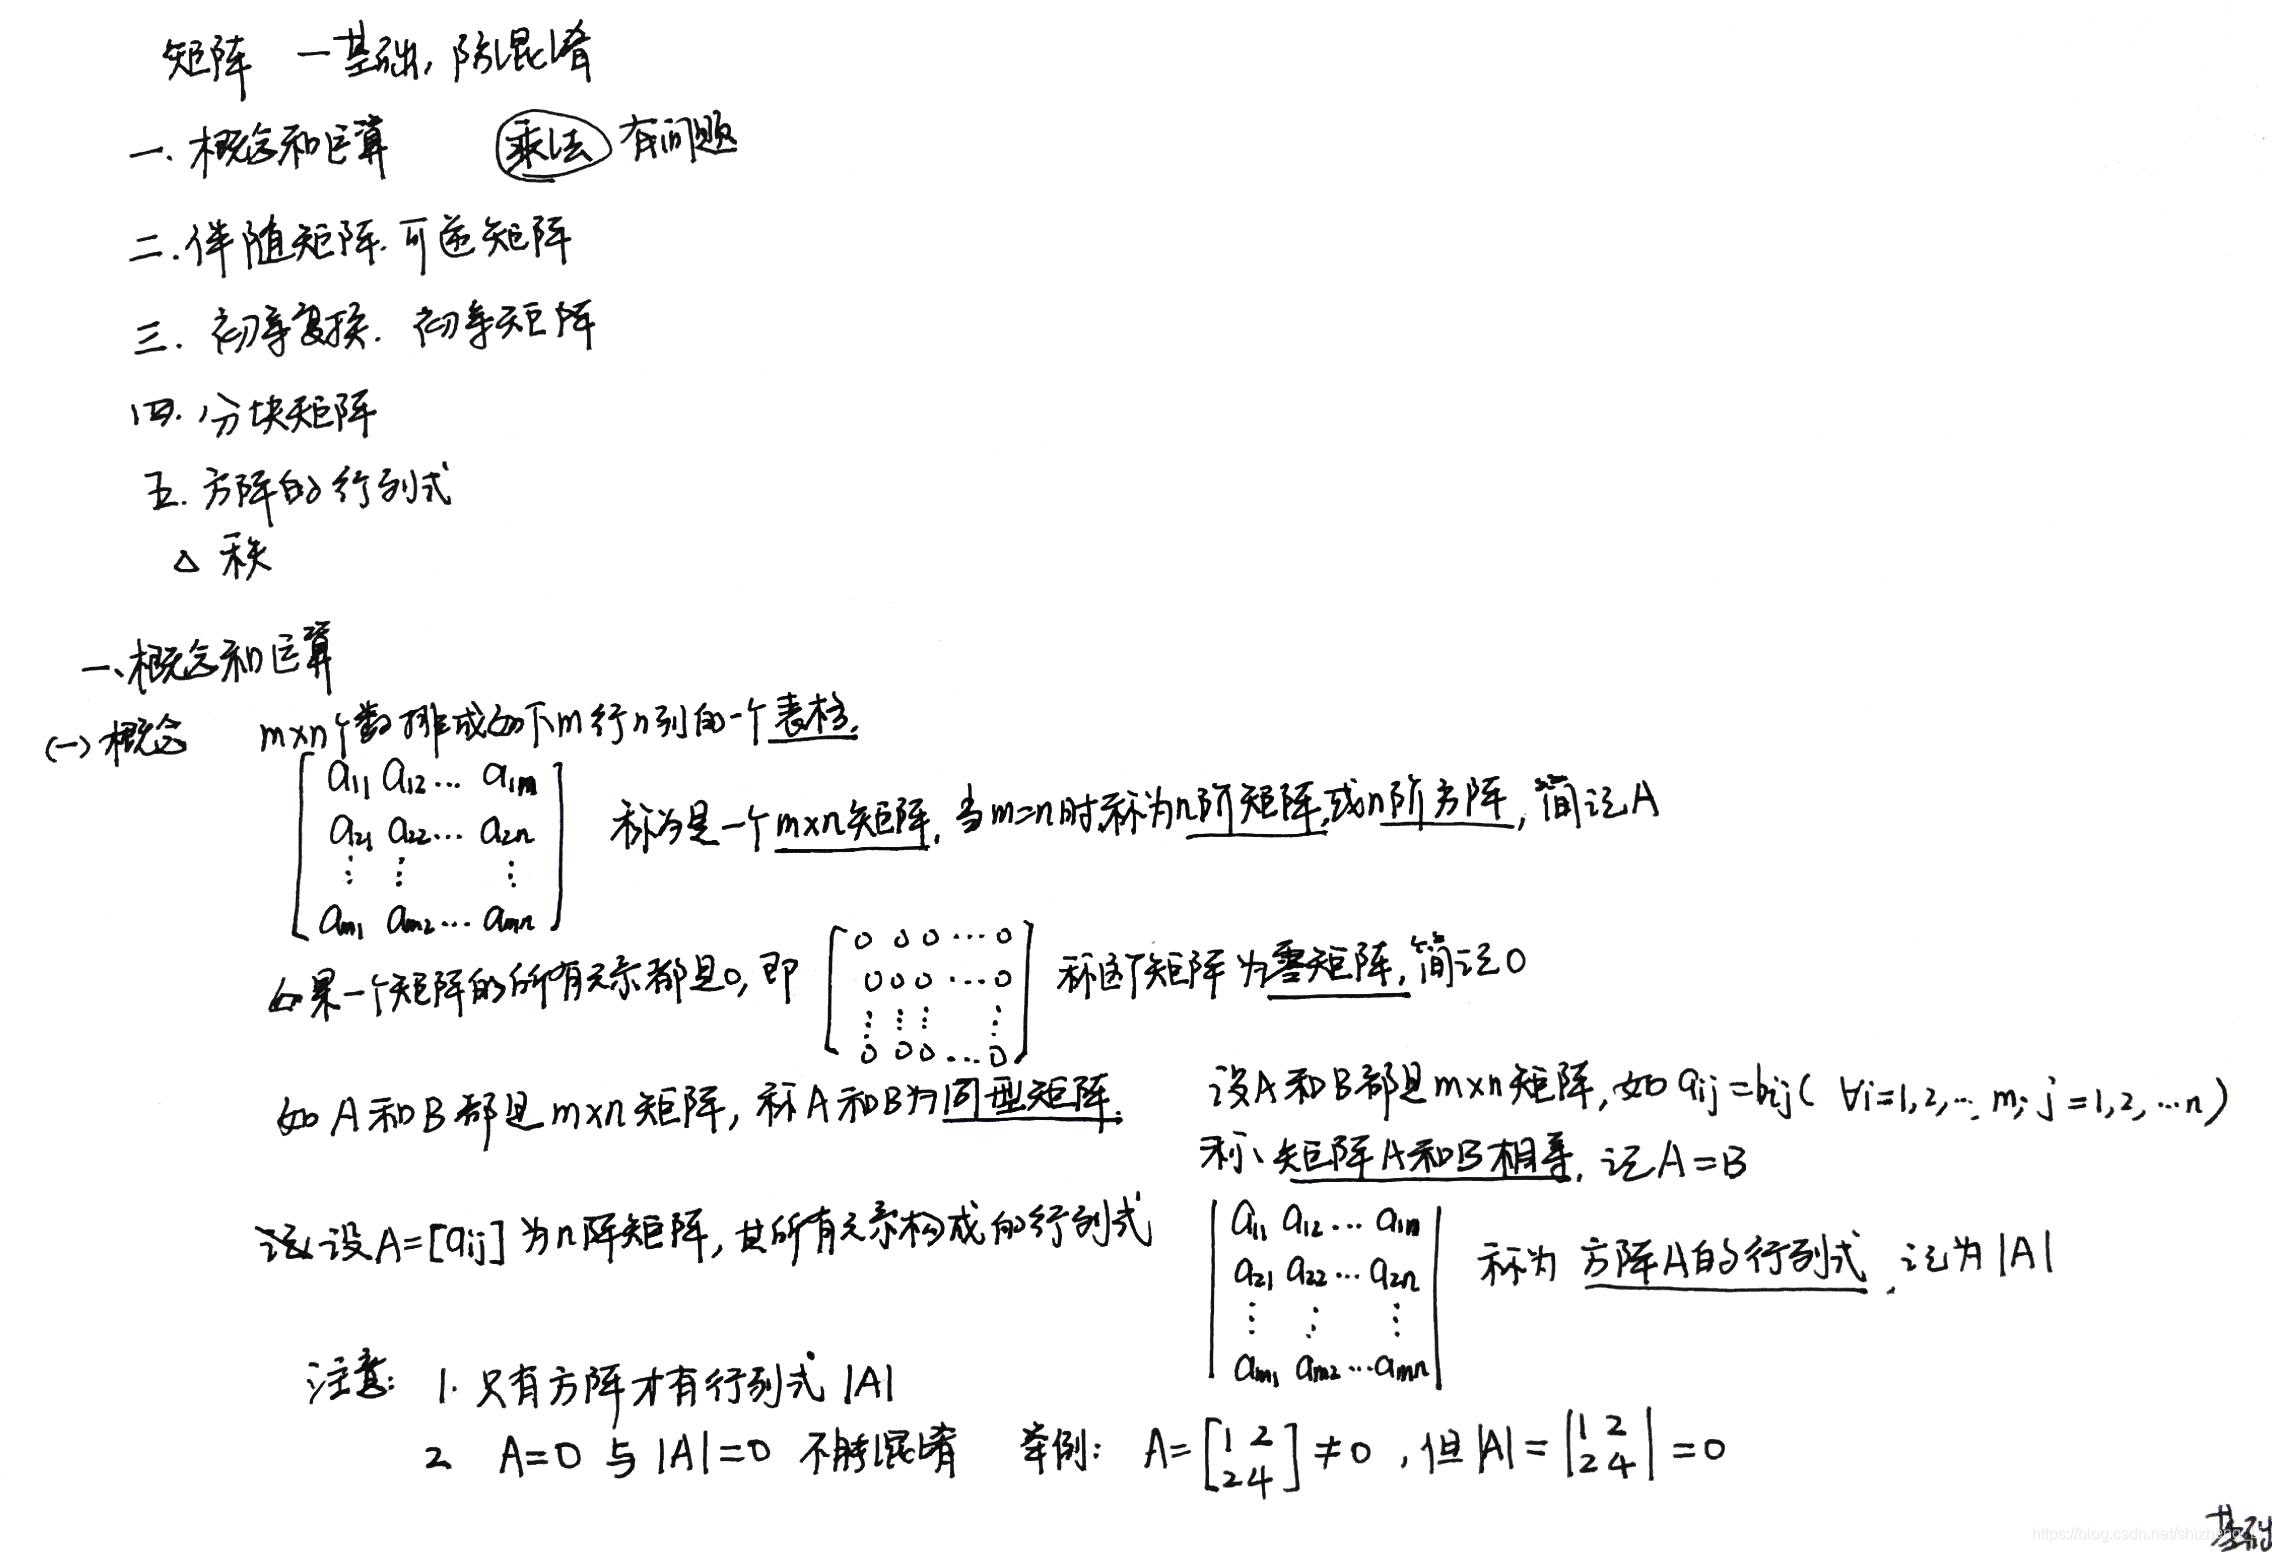 矩阵 —基础,防混淆
一.概念和运算 乘法 有问题
二.伴随矩阵.可逆矩阵
三.初等变换.初等矩阵
四.分块矩阵
五.方阵的行列式
△ 秩
一、概念和运算
(一)概念 m×n个数排成如下m行n列的一个表格.
[a11 a12… a1n
a21 a22… a2n
⋮ ⋮ ⋮
am1 am2… amn]
称为是一个m×n矩阵,当m=n时,称为n阶矩阵,或n阶方阵,简记A
如果一个矩阵的所有元素都是0,即
[0 0 0 … 0
0 0 0 … 0
⋮ ⋮ ⋮ ⋮
0 0 0 … 0]
称这个矩阵为零矩阵,简记0
如A和B都是m×n矩阵,称A和B为同型矩阵.
设A和B都是m×n矩阵,如aij=bij(∀i=1,2,…m;j=1,2,…n)
称、矩阵A和B相等,记A=B
设A=[aij]为n阵矩阵,其所有元素构成的行列式
|a11 a12… a1n
a21 a22… a2n
⋮ ⋮ ⋮
am1 am2…amn|
称为 方阵A的行列式,记为|A|
注意: 1.只有方阵才有行列式|A|
2 A=0与|A|=0 不能混淆 举例: A=[1 2
2 4]≠0,但|A|=|1 2
2 4|=0
基础